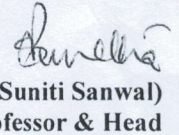 (Suniti Sanwal)
Professor & Head